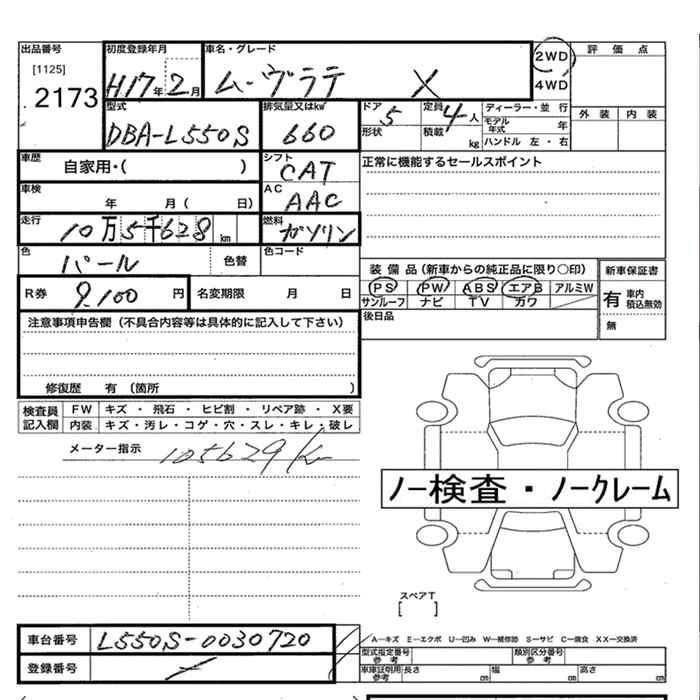 出品番号 初度登録年月 車名・グレード 2WD 評価点
[1125] H17年2月 ムーヴラテ X 4WD
2173
型式 排気量又はkw ドア 5 定員 4人 ディーラー・並行 外装 内装
DBA-L550S 660 形状 積載 kg モデル年式 年
ハンドル 左・右
車歴 自家用・( ) シフト CAT 正常に機能するセールスポイント
車検 年 月( 日) AC AAC
走行 10万5千628km 燃料 ガソリン
色 パール 色替 色コード
装備品(新車からの純正品に限り○印) 新車保証書
R券 9,100円 名変期限 月 日 PS PW ABS エアB アルミW 有 車内 積込無効
サンルーフ ナビ TV カワ
後日品 無
注意事項申告欄(不具合内容等は具体的に記入して下さい)
修復歴 有(箇所 )
検査員記入欄 FW キズ・飛石・ヒビ割・リペア跡・X要
内装 キズ・汚レ・コゲ・穴・スレ・キレ・破レ
メーター指示 105629K
ノー検査・ノークレーム
スペアT
[ ]
車台番号 L550S-0030720
登録番号
A―キズ E―エクボ U―凹み W―補修跡 S―サビ C―腐食 XX―交換済
型式指定番号 参考 類別区分番号 参考
車庫証明用 参考 長さ cm 幅 cm 高さ cm